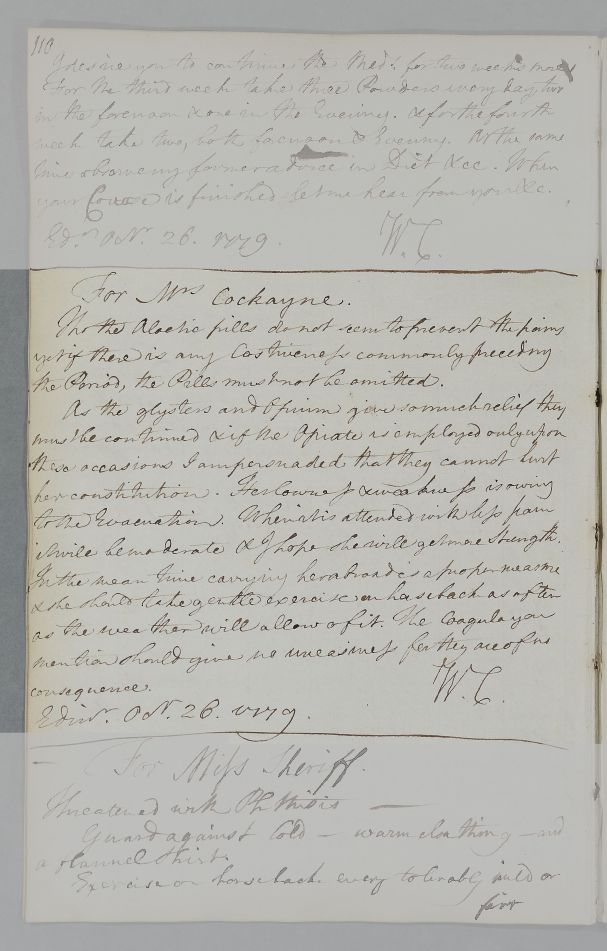 110
I desire you to continue the Med.s for two weeks more
For the third week take three Powders every day, two
in the forenoon & one in the Evening. & for the fourth
week take two, both forenoon & Evening. At the same
time observe my former advice in Diet &cc. When
your Course is finished let me hear from you &c.
Ed.r Oct.r 26. 1779. W.C.
For Mrs Cockayne.
Tho the Aloetic pills do not seem to prevent the pains
yet if there is any Costiveness commonly preceding
the Period, the Pills must not be omitted.
As the glysters and Opium give so much relief they
must be continued & if the Opiate is employed only upon
these occasions I am persuaded that they cannot hurt
her constitution. Her lowness & weakness is owing
to the Evacuation. When it is attended with less pain
it will be moderate & I hope she will get more Strength.
In the mean time carrying her abroad is a proper measure
& she should take gentle exercise on horseback as often
as the weather will allow of it. The Coagula you
mention should give no uneasiness for they are of no
consequence.
Edinr. Octr. 26. 1779. W.C.
For Miss Sheriff.
Threatened with Phthisis —
Guard against Cold — warm cloathing — and
a flannel Shirt.
Exercise on horseback every tolerably mild or
fair